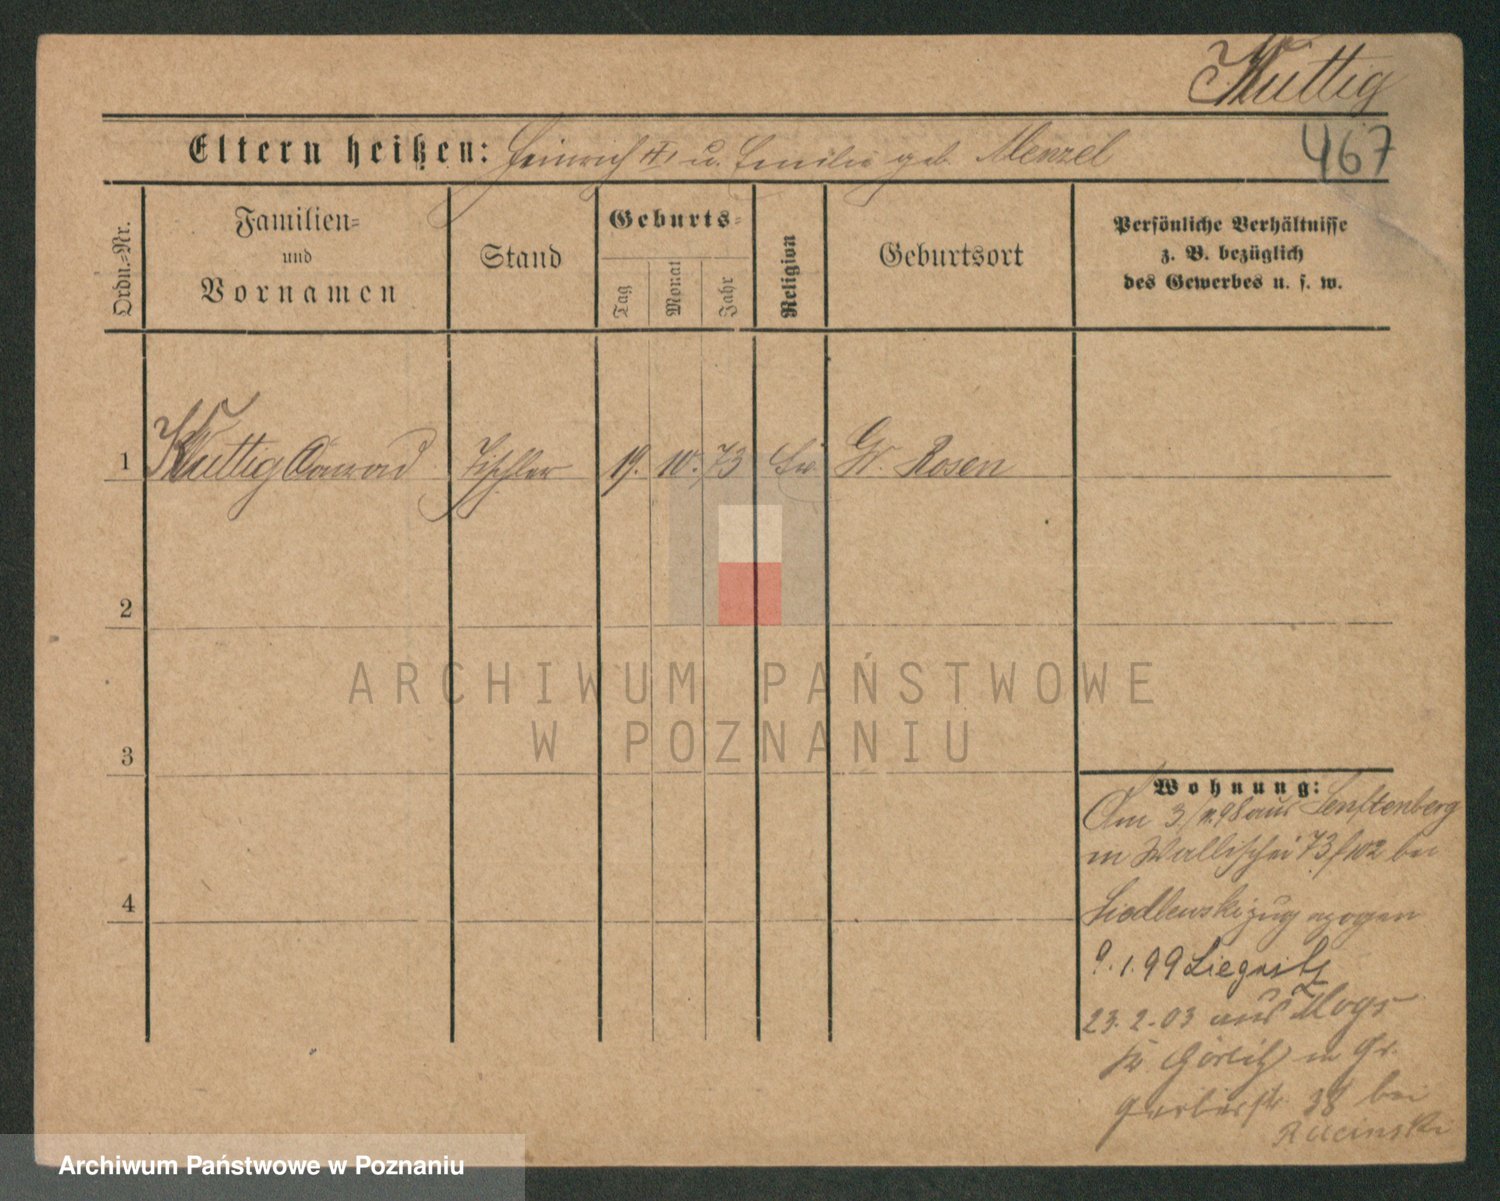 Kuttig
467
Eltern heißen: Heinrich u. Emilie geb. Menzel
Ordn.-Nr.
Familien-
und
Vornamen
Stand
Geburts-
Tag
Monat
Jahr
Religion
Geburtsort
Persönliche Verhältnisse
z. B. bezüglich
des Gewerbes u. s. w.
1 Kuttig Conrad Tischler 19. 10. 73 Ev. Gr. Rosen
2
3
4
ARCHIWUM PAŃSTWOWE
W POZNANIU
Wohnung:
Am 3./11.98 aus Senftenberg
in Wallischei 73/102 bei
Siedlewski zugezogen
9.1.99 Liegnitz
23.2.03 aus Moys
Kr. Görlitz in Gr.
Gerberstr. 38 bei
Rucinski
Archiwum Państwowe w Poznaniu